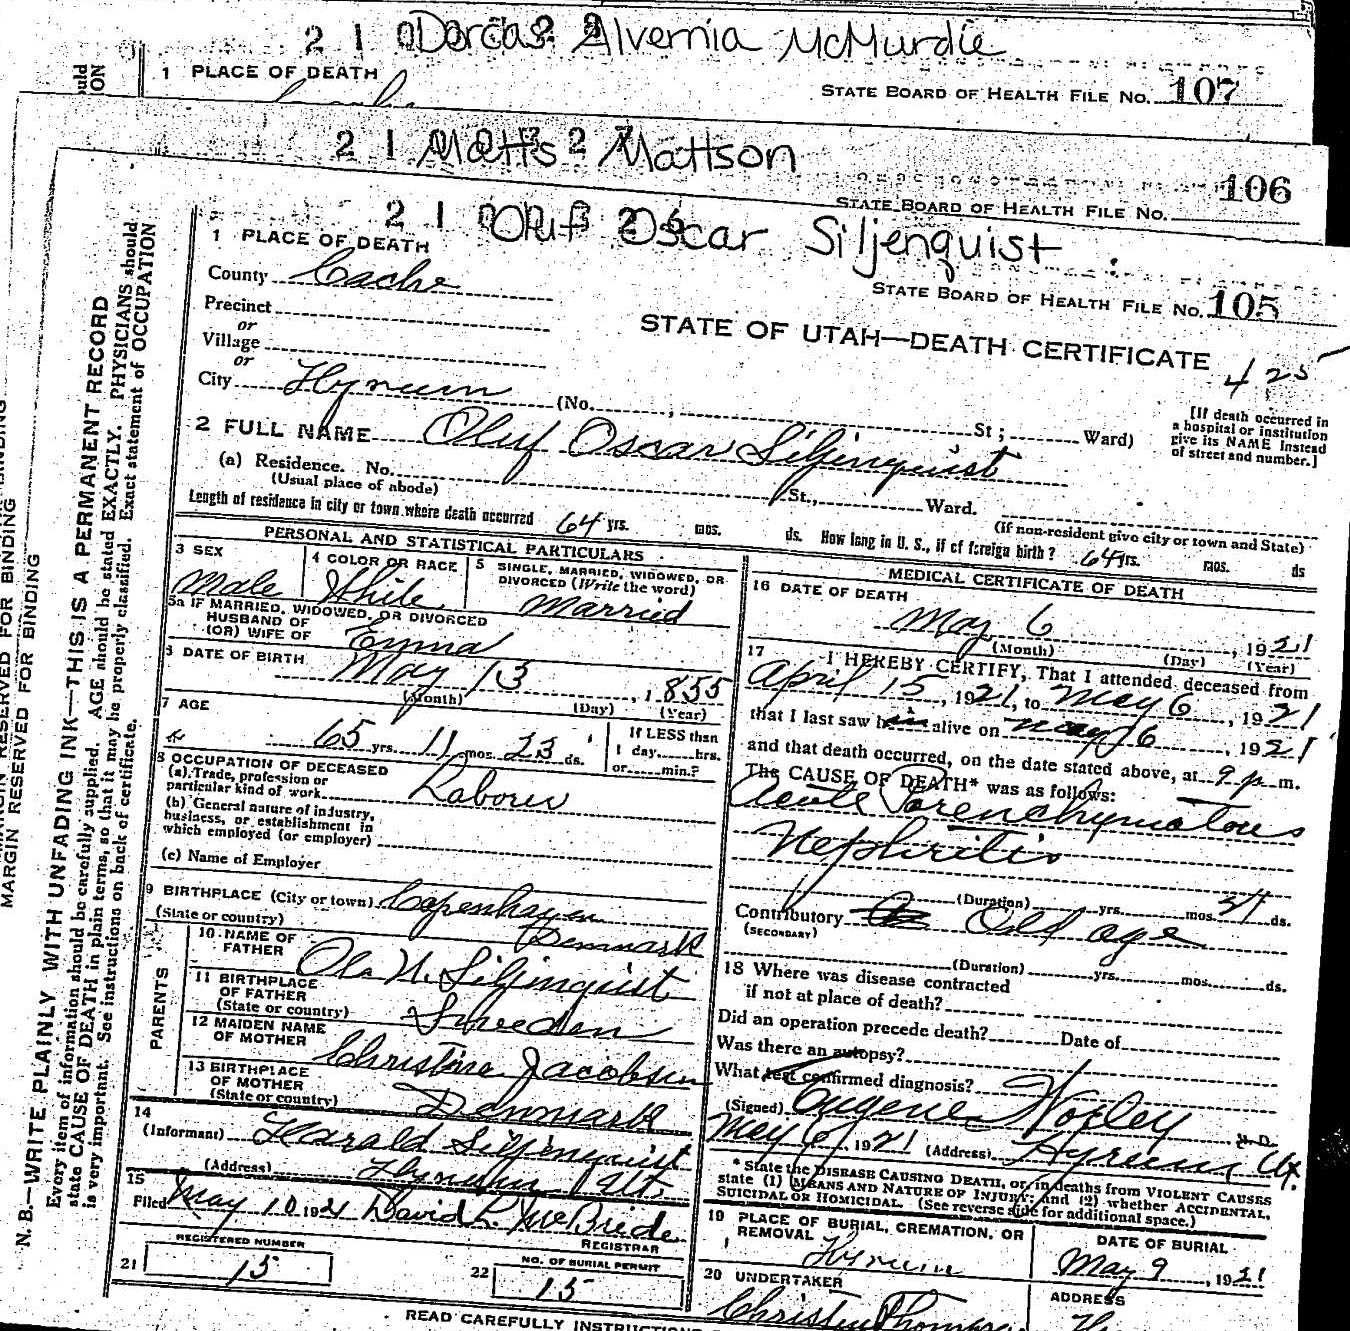 Dorcas Alvernia McMurdie
1 PLACE OF DEATH
STATE BOARD OF HEALTH FILE No. 107
Matts Mattson
STATE BOARD OF HEALTH FILE No. 106
2 1 Oluf Oscar Siljenquist
1 PLACE OF DEATH
STATE BOARD OF HEALTH FILE No. 105
County Cache
Precinct
or
Village
or
City Hyrum (No. ; St ; Ward)
STATE OF UTAH—DEATH CERTIFICATE
425
[If death occurred in
a hospital or institution
give its NAME instead
of street and number.]
2 FULL NAME Oluf Oscar Siljenquist
(a) Residence. No. St., Ward.
(Usual place of abode) (If non-resident give city or town and State)
Length of residence in city or town where death occurred 64 yrs. mos. ds. How long in U. S., if of foreign birth? 64 yrs. mos. ds
PERSONAL AND STATISTICAL PARTICULARS
3 SEX
Male
4 COLOR OR RACE
White
5 SINGLE, MARRIED, WIDOWED, OR
DIVORCED (Write the word)
Married
5a IF MARRIED, WIDOWED, OR DIVORCED
HUSBAND OF
(OR) WIFE OF Emma
6 DATE OF BIRTH May 13, 1855
(Month) (Day) (Year)
7 AGE
65 yrs. 11 mos. 23 ds.
If LESS than
1 day hrs.
or min.?
8 OCCUPATION OF DECEASED
(a) Trade, profession or
particular kind of work Labour
(b) General nature of industry,
business, or establishment in
which employed (or employer)
(c) Name of Employer
9 BIRTHPLACE (City or town) Copenhagen
(State or country) Denmark
PARENTS
10 NAME OF
FATHER Ola N. Siljenquist
11 BIRTHPLACE
OF FATHER
(State or country) Sweden
12 MAIDEN NAME
OF MOTHER Christina Jacobsen
13 BIRTHPLACE
OF MOTHER
(State or country) Denmark
14
(Informant) Harald Siljenquist
(Address) Hyrum Ut.
15
Filed May 10 1921 David L. McBride
REGISTRAR
21 REGISTERED NUMBER
15
22 NO. OF BURIAL PERMIT
15
MEDICAL CERTIFICATE OF DEATH
16 DATE OF DEATH
May 6, 1921
(Month) (Day) (Year)
17 I HEREBY CERTIFY, That I attended deceased from
April 15, 1921, to May 6, 1921
that I last saw him alive on May 6, 1921
and that death occurred, on the date stated above, at 9 p m.
The CAUSE OF DEATH* was as follows:
Acute Parenchymatous
Nephritis
(Duration) yrs. mos. ds.
Contributory Old age
(SECONDARY)
(Duration) yrs. mos. ds.
18 Where was disease contracted
if not at place of death?
Did an operation precede death? Date of
Was there an autopsy?
What test confirmed diagnosis?
(Signed) Eugene Worley, M. D.
May 6, 1921 (Address) Hyrum Ut.
* State the DISEASE CAUSING DEATH, or, in deaths from VIOLENT CAUSES
state (1) MEANS AND NATURE OF INJURY; and (2) whether ACCIDENTAL,
SUICIDAL OR HOMICIDAL. (See reverse side for additional space.)
19 PLACE OF BURIAL, CREMATION, OR
REMOVAL Hyrum
DATE OF BURIAL
May 9, 1921
20 UNDERTAKER
ADDRESS
READ CAREFULLY INSTRUCTIONS
MARGIN RESERVED FOR BINDING
MARGIN RESERVED FOR BINDING
N. B.—WRITE PLAINLY WITH UNFADING INK—THIS IS A PERMANENT RECORD
Every item of information should be carefully supplied. AGE should be stated EXACTLY. PHYSICIANS should
state CAUSE OF DEATH in plain terms, so that it may be properly classified. Exact statement of OCCUPATION
is very important. See instructions on back of certificate.